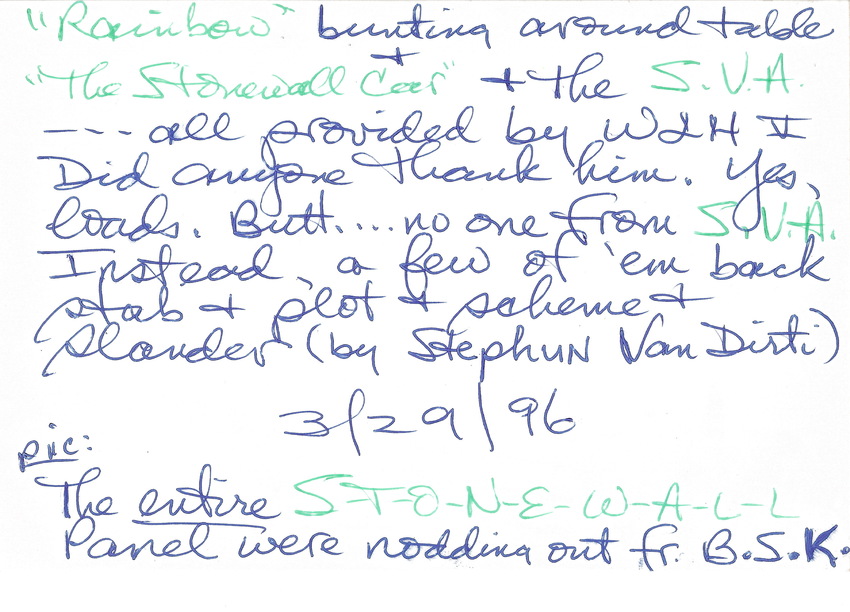 "Rainbow" bunting around table
+
"The Stonewall Car" + the S.V.A.
---- all provided by WLH II
Did anyone thank him. Yes,
loads. Butt.... no one from S.V.A.
Instead, a few of 'em back
stab + plot + scheme +
slander (by Stephun Van Dirti)
3/29/96
pic:
The entire S-T-O-N-E-W-A-L-L
Panel were nodding out fr. B.S.K.